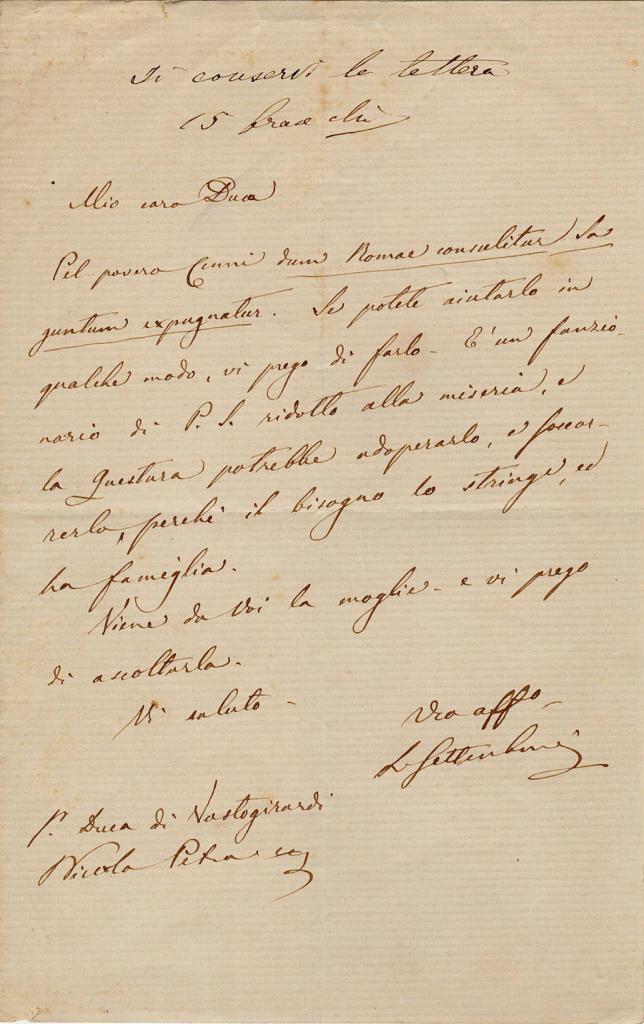 Si conservi la lettera
15
Mio caro Duca
Pel povero Cenni dum Romae consulitur Sa
guntum expugnatur. Se potete aiutarlo in
qualche modo, vi prego di farlo - È un funzio-
nario di P. S. ridotto alla miseria, e
la Questura potrebbe adoperarlo, e soccor-
rerlo, perché il bisogno lo stringe, ed
ha famiglia.
Viene da Voi la moglie - e vi prego
di ascoltarla.
Vi saluto -
Vro affo
L Settembrini
S. Duca di Vastogirardi
Nicola Petra